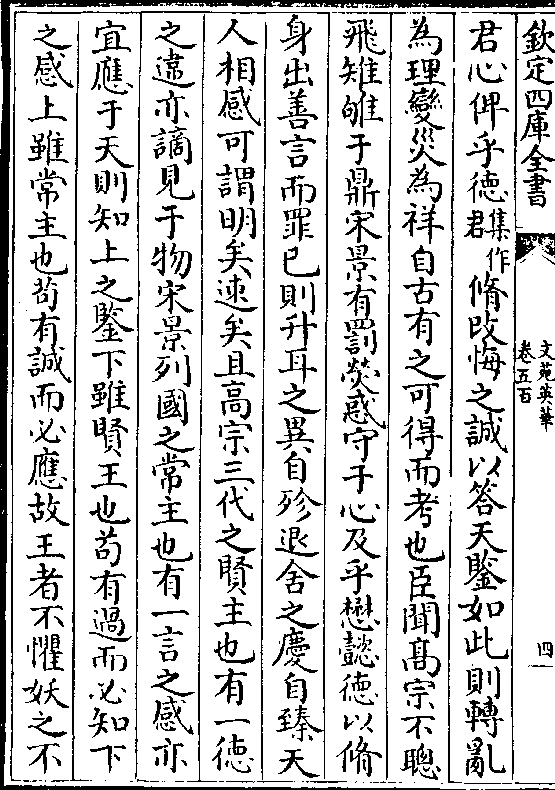 欽定四庫全書
文苑英華
卷五百
四
君心俾乎德集作君脩改悔之誠以答天鑒如此則轉亂
為理變災為祥自古有之可得而考也臣聞髙宗不聰
飛雉雊于鼎宋景有罰熒惑守于心及乎懋懿德以脩
身出善言而罪已則升耳之異自殄退舍之慶自臻天
人相感可謂明矣速矣且高宗三代之賢主也有一徳
之違亦謫見于物宋景列國之常主也有一言之感亦
宜應于天則知上之鑒下雖賢王也苟有過而必知下
之感上雖常主也苟有誠而必應故王者不懼妖之不